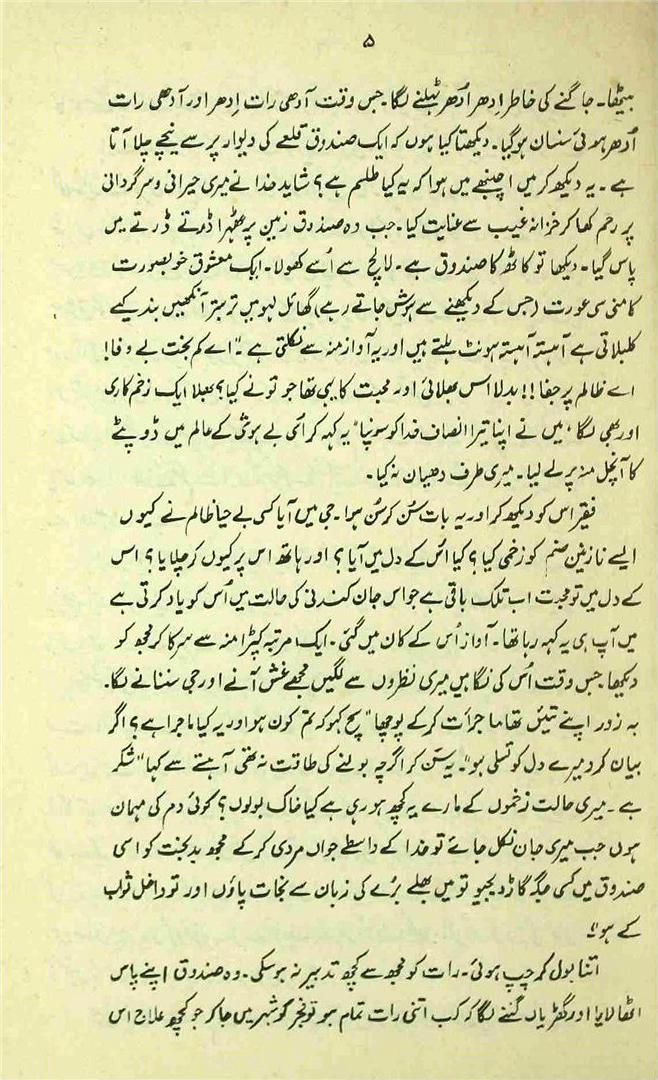 ۵
بیٹھا۔ جاگنے کی خاطر اِدھر اُدھر ٹہلنے لگا۔ جس وقت آدھی رات اِدھر اور آدھی رات
اُدھر ہوئی سنسان ہو گیا۔ دیکھتا کیا ہوں کہ ایک صندوق قلعے کی دیوار پر سے نیچے چلا آتا
ہے۔ یہ دیکھ کر میں اچنبھے میں ہوا کہ یہ کیا طلسم ہے؟ شاید خدا نے میری حیرانی و سرگردانی
پر رحم کھا کر خزانہ غیب سے عنایت کیا۔ جب وہ صندوق زمین پر ٹھہرا ڈرتے ڈرتے میں
پاس گیا۔ دیکھا تو کاٹھ کا صندوق ہے۔ لالچ سے اُسے کھولا۔ ایک معشوق خوبصورت
کامنی سی عورت (جس کے دیکھنے سے ہوش جاتے رہے) گھائل لہو میں تربتر آنکھیں بند کیے
کلبلاتی ہے آہستہ آہستہ ہونٹ ہلتے ہیں اور یہ آواز منہ سے نکلتی ہے۔ "اے کم بخت بے وفا!
اے ظالم پر جفا!! بدلا اس بھلائی اور محبت کا یہی تھا جو تو نے کیا؟ بھلا ایک زخم کاری
اور بھی لگا، میں نے اپنا تیرا انصاف خدا کو سونپا" یہ کہہ کر اُسی بے ہوشی کے عالم میں ڈوپٹے
کا آنچل منہ پر لے لیا۔ میری طرف دھیان نہ کیا۔
فقیر اس کو دیکھ کر اور یہ بات سُن کر سُن ہوا۔ جی میں آیا کسی بے حیا ظالم نے کیوں
ایسے نازنین صنم کو زخمی کیا؟ کیا اُس کے دل میں آیا؟ اور ہاتھ اس پر کیوں کر چلایا؟ اس
کے دل میں تو محبت اب تلک باقی ہے جو اس جان کندنی کی حالت میں اُس کو یاد کرتی ہے
میں آپ ہی یہ کہہ رہا تھا۔ آواز اُس کے کان میں گئی۔ ایک مرتبہ کپڑا منہ سے سرکا کر مجھ کو
دیکھا جس وقت اُس کی نگاہیں میری نظروں سے لگیں مجھے غش آنے اور جی سنسنانے لگا۔
بہ زور اپنے تئیں تھاما جرأت کر کے پوچھا "سچ کہو کہ تم کون ہو اور یہ کیا ماجرا ہے؟ اگر
بیان کرو میرے دل کو تسلی ہو"۔ یہ سُن کر اگرچہ بولنے کی طاقت نہ تھی آہستے سے کہا "شکر
ہے۔ میری حالت زخموں کے مارے یہ کچھ ہو رہی ہے کیا خاک بولوں؟ کوئی دم کی مہمان
ہوں جب میری جان نکل جائے تو خدا کے واسطے جواں مردی کر کے مجھ بدبخت کو اسی
صندوق میں کسی جگہ گاڑ دیجیو تو میں بھلے بُرے کی زبان سے نجات پاؤں اور تو داخل ثواب
کے ہو"۔
اتنا بول کر چپ ہوئی۔ رات کو مجھ سے کچھ تدبیر نہ ہوسکی۔ وہ صندوق اپنے پاس
اٹھا لایا اور گھڑیاں گننے لگا کہ کب اتنی رات تمام ہو تو فجر کو شہر میں جا کر جو کچھ علاج اس